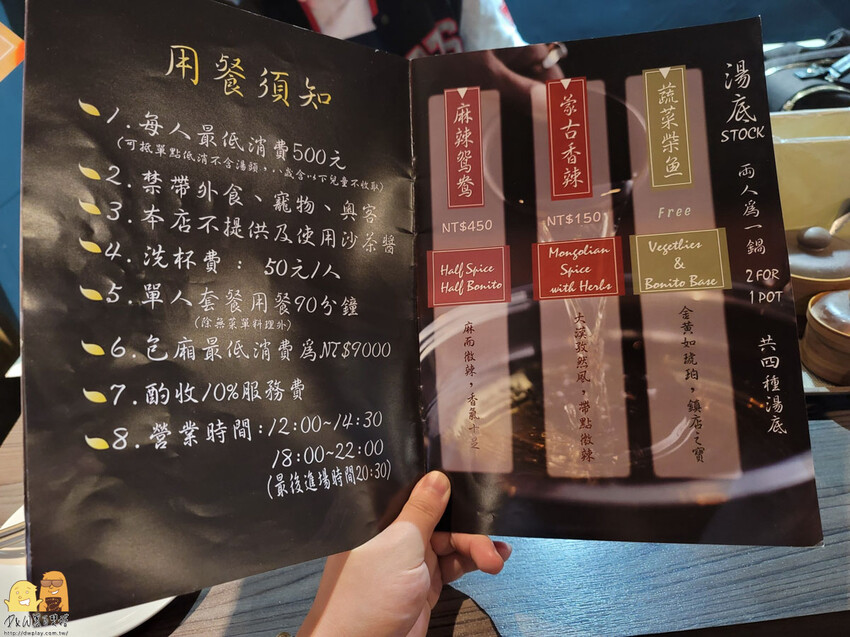 用餐須知
1.每人最低消費500元
(可抵單點低消不含湯頭,八歲含以下兒童不收取)
2.禁帶外食、寵物、奧客
3.本店不提供及使用沙茶醬
4.洗杯費：50元/1人
5.單人套餐用餐90分鐘
(除無菜單料理外)
6.包廂最低消費為NT$9000
7.酌收10%服務費
8.營業時間:12:00~14:30
18:00~22:00
(最後進場時間20:30)
湯底
STOCK
兩人為一鍋
2 FOR
1 POT
共四種湯底
蔬菜柴魚
Free
Vegethies
&
Bonito Base
金黃如琥珀，鎮店之寶
蒙古香辣
NT$150
Mongolian
Spice
with Herbs
大漠孜然風，帶點微辣
麻辣鴛鴦
NT$450
Half Spice
Half Bonito
麻而微辣，香氣十足
http://dwplay.com.tw/